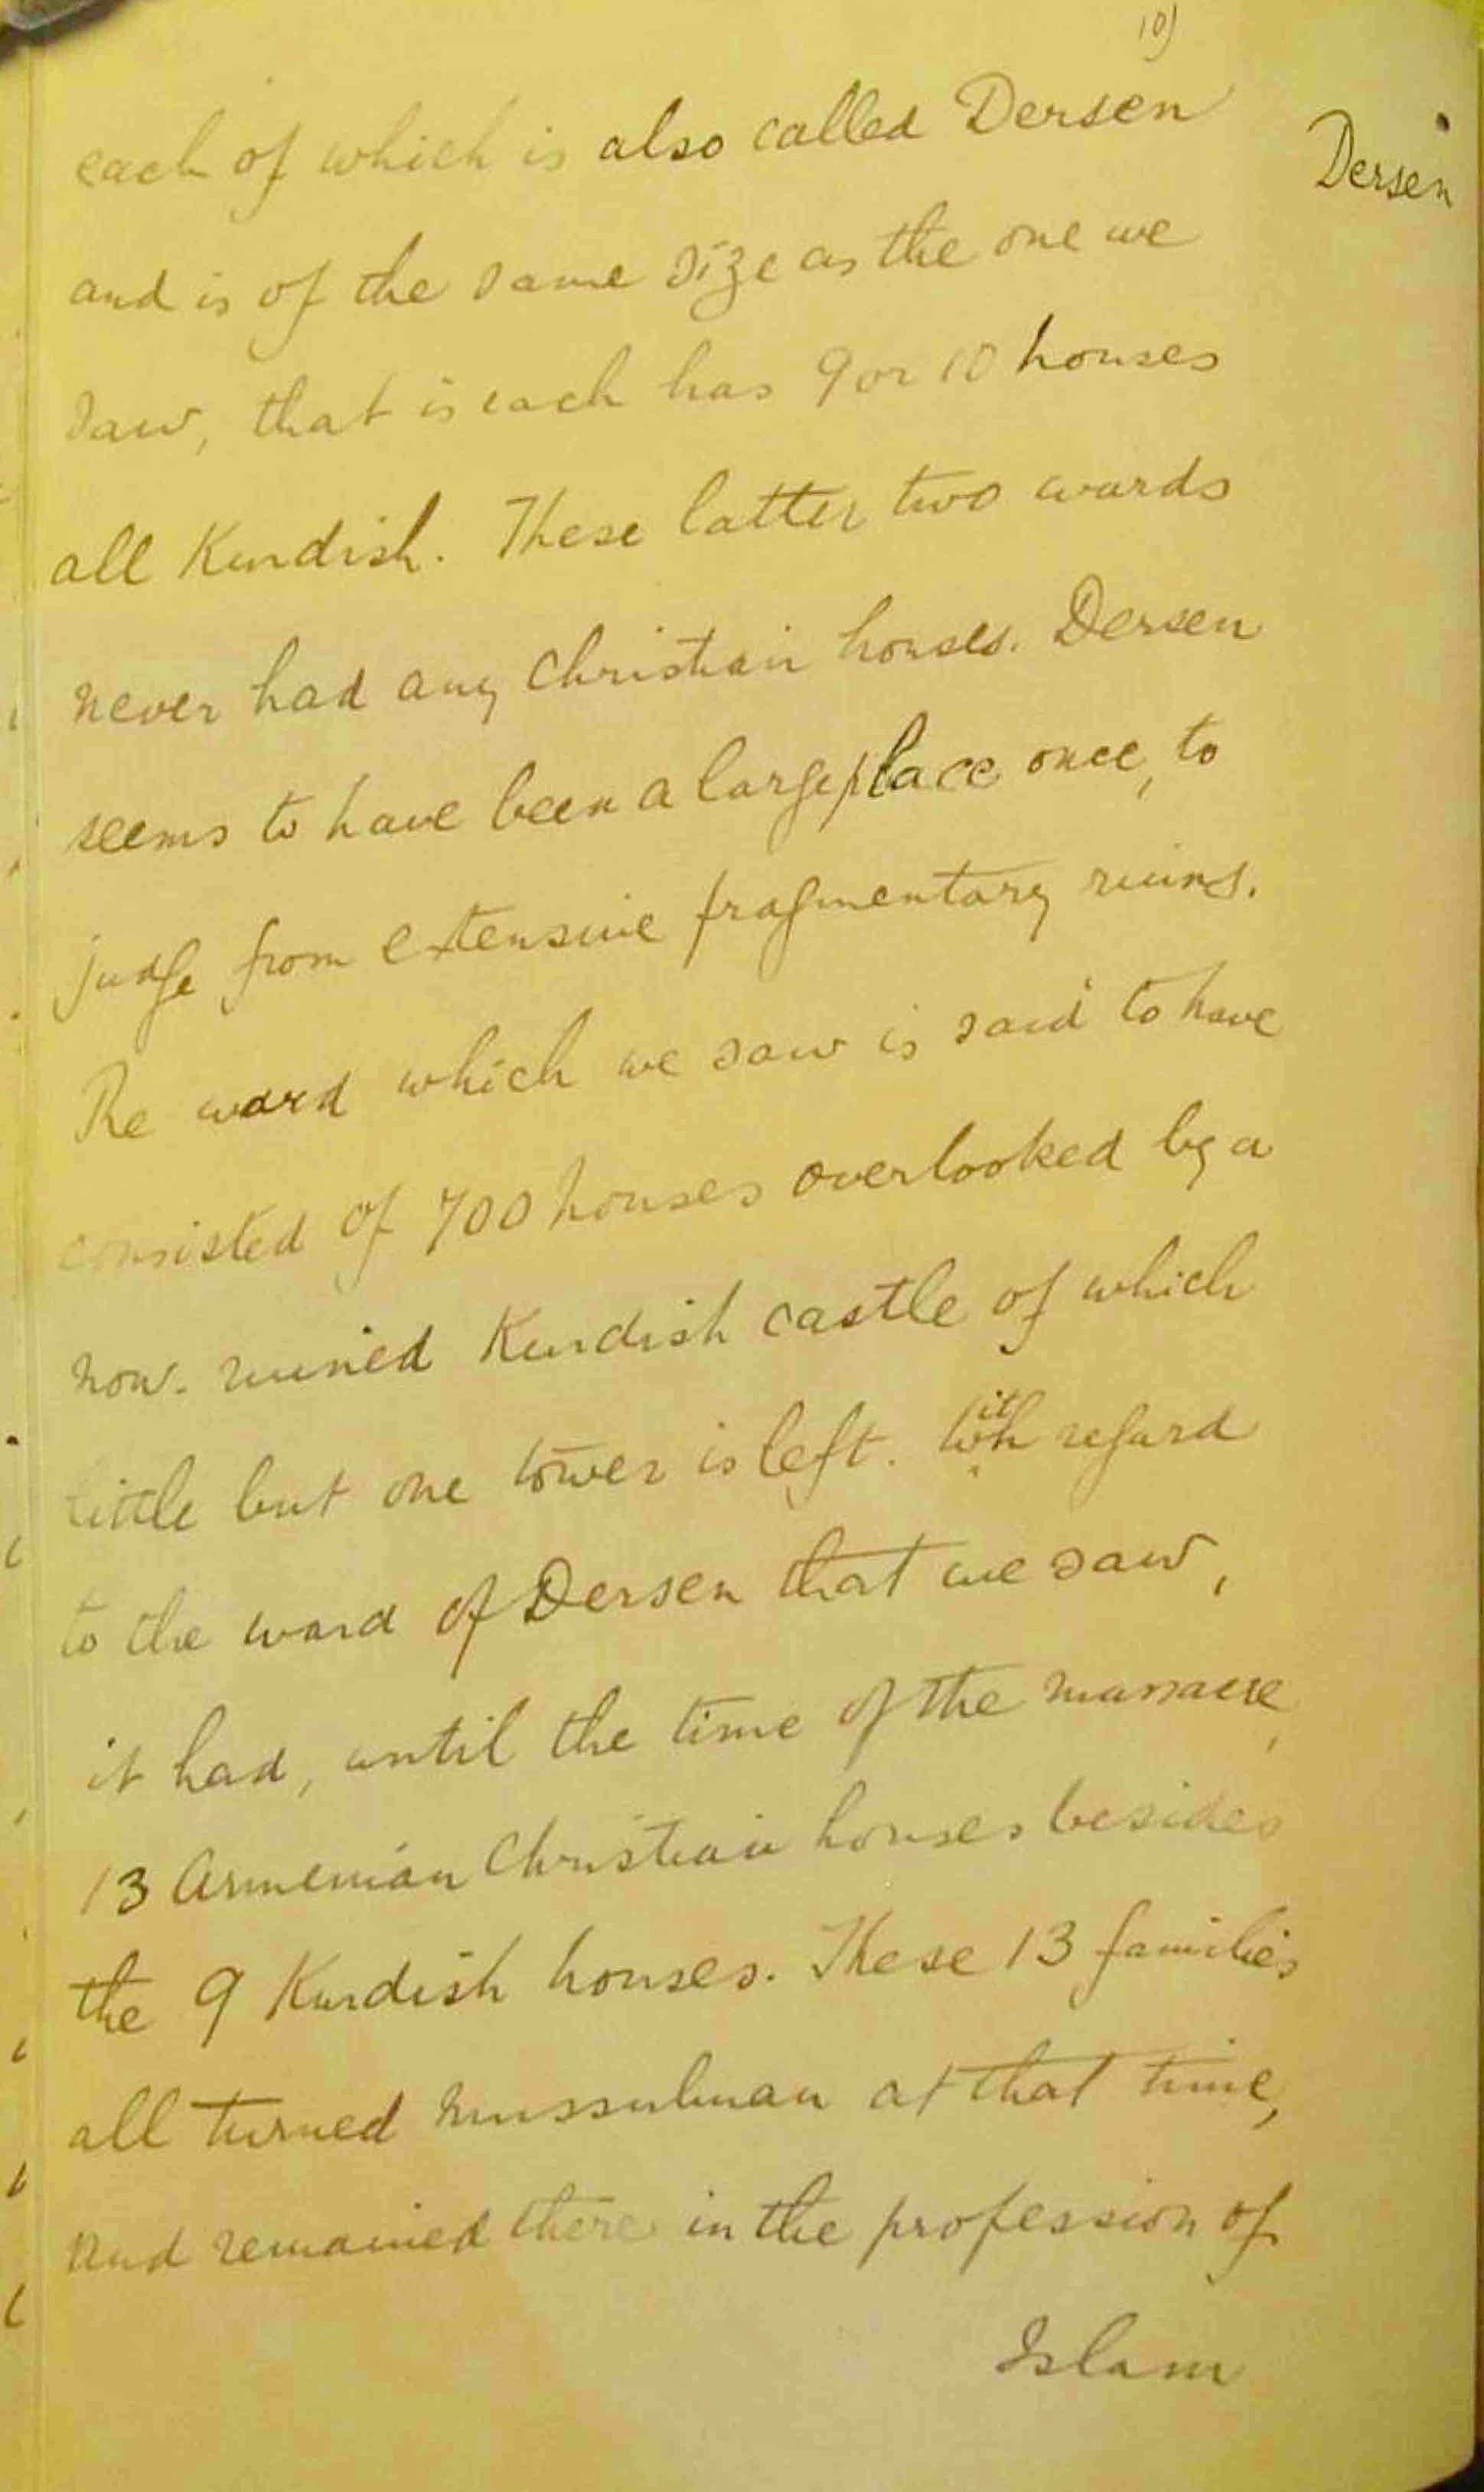 10)
each of which is also called Dersen
Dersen
and is of the same size as the one we
saw, that is each has 9 or 10 houses
all Kurdish. These latter two wards
never had any Christian houses. Dersen
seems to have been a large place once, to
judge from extensive fragmentary ruins.
The ward which we saw is said to have
consisted of 700 houses overlooked by a
now ruined Kurdish castle of which
little but one tower is left. With regard
to the ward of Dersen that we saw,
it had, until the time of the massacre,
13 Armenian Christian houses besides
the 9 Kurdish houses. These 13 families
all turned Mussulman at that time,
and remained there in the profession of
Islam